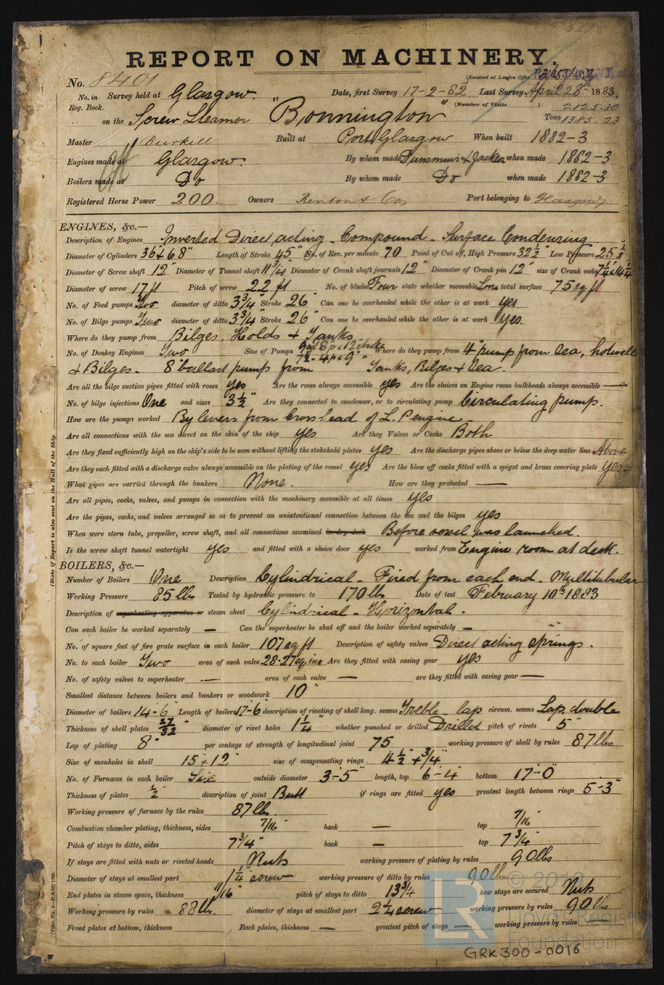 REPORT ON MACHINERY.
No. 8401
(Received at London Office
No. in Survey held at Glasgow. Date, first Survey 17-2-82 Last Survey April 28th 1883.
Reg. Book. (Number of Visits )
on the Screw Steamer "Bonnington" Tons 2125.30
1385.23
Master Built at Port Glasgow When built 1882-3
Engines made at Glasgow. By whom made when made 1882-3
Boilers made at Do By whom made Do when made 1882-3
Registered Horse Power 200 Owners Renton & Co. Port belonging to Glasgow
ENGINES, &c.—
Description of Engines Inverted Direct acting - Compound - Surface Condensing
Diameter of Cylinders 36 & 68" Length of Stroke 45" No. of Rev. per minute 70 Point of Cut off, High Pressure 32½" Low Pressure
Diameter of Screw shaft 12" Diameter of Tunnel shaft 11¾" Diameter of Crank shaft journals 12" Diameter of Crank pin 12" size of Crank webs
Diameter of screw 17 ft Pitch of screw 22 ft No. of blades Four state whether moveable total surface 75 sq ft
No. of Feed pumps Two diameter of ditto 3¾" Stroke 26" Can one be overhauled while the other is at work yes
No. of Bilge pumps Two diameter of ditto 3¾" Stroke 26" Can one be overhauled while the other is at work yes.
Where do they pump from Bilges, Holds & Tanks
No. of Donkey Engines Two Size of Pumps Where do they pump from 4" pump from Sea, hotwell
& Bilges - 8" ballast pump from Tanks, Bilges & Sea.
Are all the bilge suction pipes fitted with roses yes Are the roses always accessible yes Are the sluices on Engine room bulkheads always accessible —
No. of bilge injections One and sizes 3½" Are they connected to condenser, or to circulating pump Circulating pump.
How are the pumps worked By levers from Cross head of L.P. engine
Are all connections with the sea direct on the skin of the ship yes Are they Valves or Cocks Both
Are they fixed sufficiently high on the ship's side to be seen without lifting the stokehold plates yes Are the discharge pipes above or below the deep water line Above
Are they each fitted with a discharge valve always accessible on the plating of the vessel yes Are the blow off cocks fitted with a spigot and brass covering plate yes-
What pipes are carried through the bunkers None. How are they protected —
Are all pipes, cocks, valves, and pumps in connection with the machinery accessible at all times yes
Are the pipes, cocks, and valves arranged so as to prevent an unintentional connection between the sea and the bilges yes
When were stern tube, propeller, screw shaft, and all connections examined in dry dock Before vessel was launched
Is the screw shaft tunnel watertight yes and fitted with a sluice door yes worked from Engine room at deck.
BOILERS, &c.—
Number of Boilers One Description Cylindrical - Fired from each end - Multitubular
Working Pressure 85 lb Tested by hydraulic pressure to 170 lb Date of test February 10th 1883
Description of superheating apparatus or steam chest Cylindrical - Horizontal.
Can each boiler be worked separately — Can the superheater be shut off and the boiler worked separately —
No. of square feet of fire grate surface in each boiler 107 sq ft Description of safety valves Direct acting springs.
No. to each boiler Two area of each valve 28.27 sq ins Are they fitted with easing gear yes
No. of safety valves to superheater — area of each valve — are they fitted with easing gear —
Smallest distance between boilers and bunkers or woodwork 10"
Diameter of boilers 14-6 Length of boilers 17-6 description of riveting of shell long. seams Treble lap circum. seams Lap double
Thickness of shell plates 27/32 diameter of rivet holes 1¼" whether punched or drilled Drilled pitch of rivets 5"
Lap of plating 8" per centage of strength of longitudinal joint 75 working pressure of shell by rules 87 lbs
Size of manholes in shell 15 x 12" size of compensating rings 4½ x ¾"
No. of Furnaces in each boiler Six outside diameter 3-5" length, top 6-4 bottom 17-0"
Thickness of plates ½" description of joint Butt if rings are fitted yes greatest length between rings 5-3"
Working pressure of furnace by the rules 87 lb.
Combustion chamber plating, thickness, sides 7/16" back — top 7/16"
Pitch of stays to ditto, sides 7¾" back — top 7¾"
If stays are fitted with nuts or riveted heads Nuts working pressure of plating by rules 90 lbs
Diameter of stays at smallest part 1¼" screw working pressure of ditto by rules 90 lbs
End plates in steam space, thickness 11/16" pitch of stays to ditto 13¾" how stays are secured Nuts
Working pressure by rules 88 lb. diameter of stays at smallest part 2¼" screw working pressure by rules 90 lbs
Front plates at bottom, thickness Back plates, thickness — greatest pitch of stays — working pressure by rules
(State if Report is also sent on the Hull of the Ship.
LR
© 2020
Lloyd's Register
Foundation
GRK300-0016